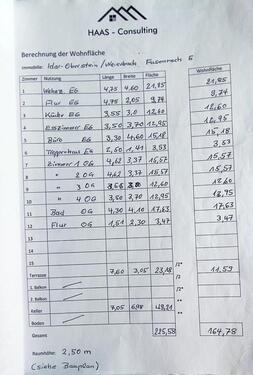 HAAS - Consulting
Berechnung der Wohnfläche
Immobilie: Idar-Oberstein/Weierbach
Zimmer Nutzung Länge Breite Fläche Wohnfläche
1 Wohnz. EG 4,75 4,60 21,85 21,85
2 Flur EG 4,95 2,05 9,74 9,74
3 Küche EG 3,55 3,0 12,60 12,60
4 Esszimmer EG 3,50 3,70 12,95 12,95
5 Büro EG 3,30 4,60 15,18 15,18
6 EG 2,50 1,41 3,53 3,53
7 Zimmer 1 OG 4,62 3,37 15,57 15,57
8 " 2 OG 4,62 3,37 15,57 15,57
9 " 3 OG 12,60 12,60
10 " 4 OG 3,50 3,70 12,95 12,95
11 Bad OG 4,30 4,10 17,63 17,63
12 Flur OG 1,51 2,30 3,47 3,47
13
14
15
Terrasse 7,60 3,05 23,18 /2* 11,59
1. Balkon /2*
2. Balkon /2*
Keller 7,05 6,98 49,21 **
Boden **
Gesamt 225,58 164,78
Raumhöhe: 2,50 m
(siehe Bauplan)